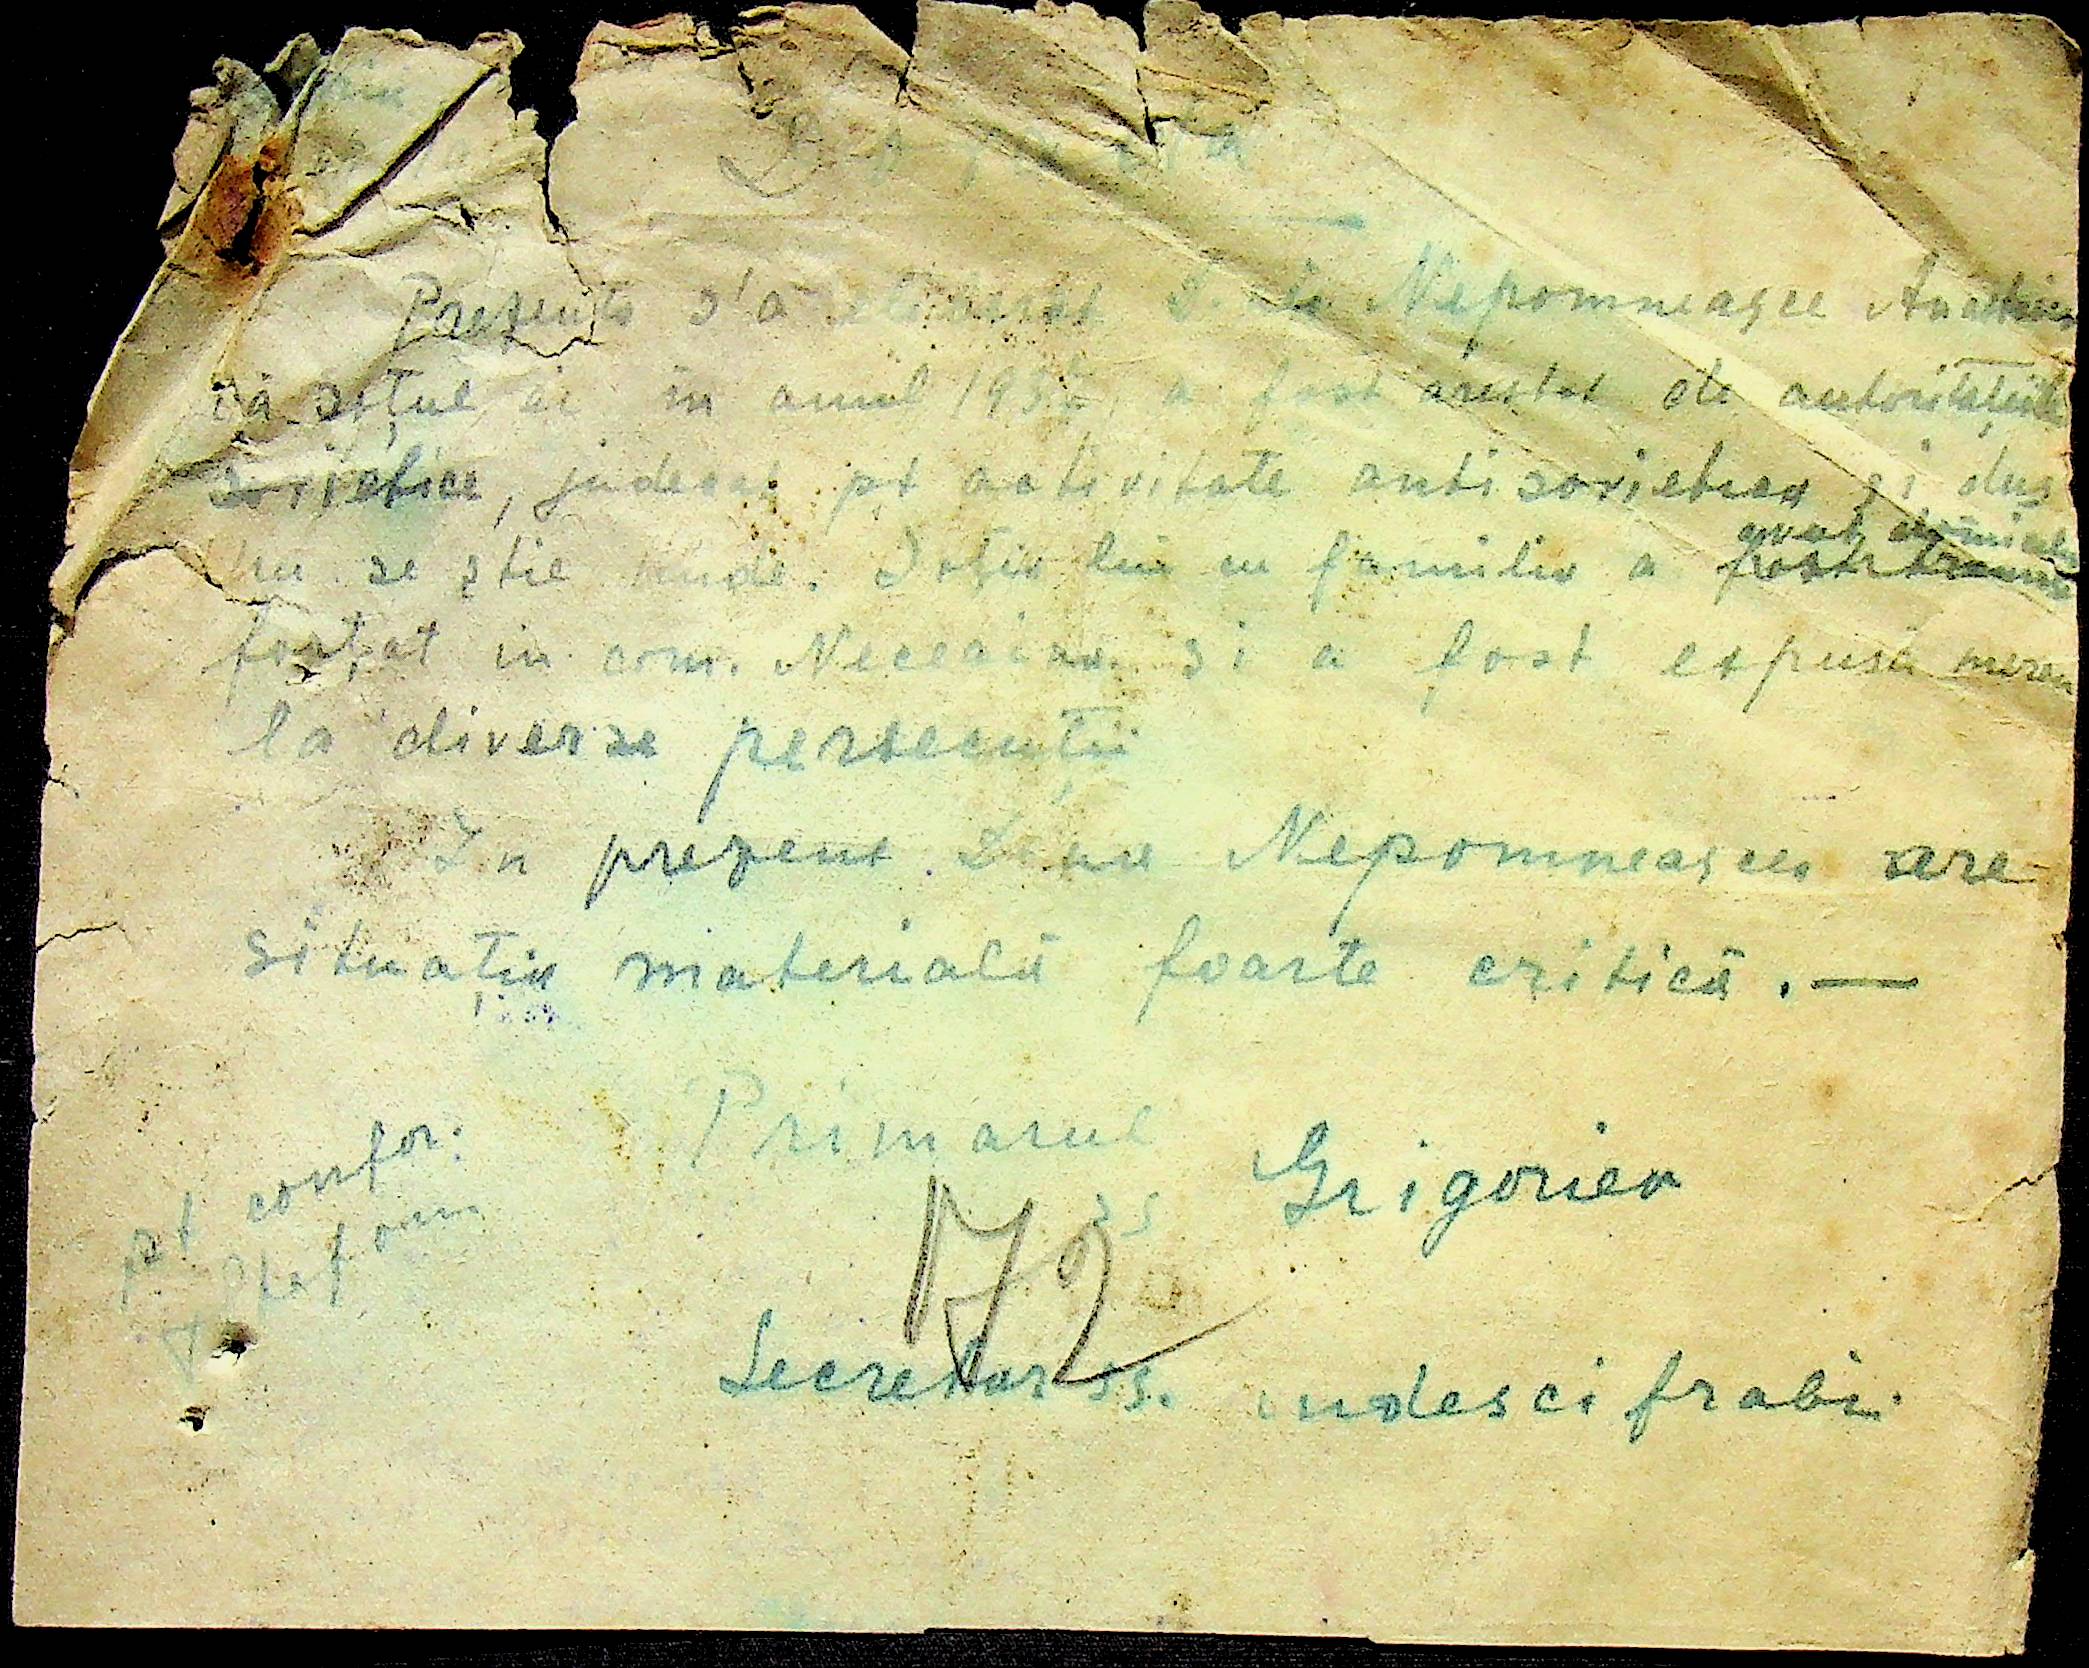 Prezenta s'a eliberat D-nei Nepomneasce Anastasia
că soțul ei în anul 193 a fost arestat de autoritățile
sovietice, judecat pt activitate antisovietica și dus
nu se știe unde. Soția lui cu familia a avut domiciliu
forțat in com. si a fost expusă mereu
la diverse persecuții
In prezent D-na Nepomneascea are
situația materială foarte critică. —
Primarul
ss Grigoriev
pt confor:
72
Secretar ss. indescifrabil